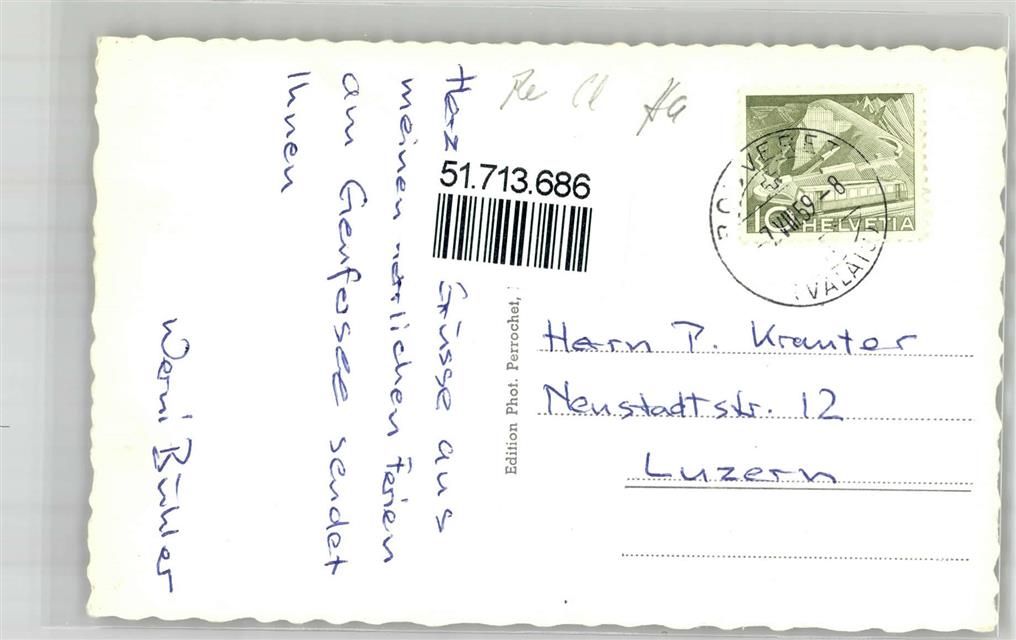 Herz Grüsse aus
meinen herrlichen Ferien
am Genfersee sendet
Ihnen
Werni Bühler
51.713.686
Edition Phot. Perrochet,
10 HELVETIA
BOUVERET
7.VIII.59-8
(VALAIS)
Herrn P. Krauter
Neustadtstr. 12
Luzern